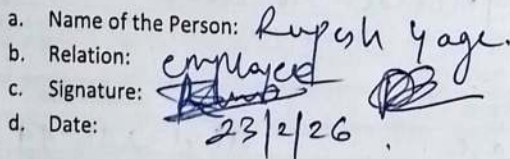 a. Name of the Person: Rupesh Yage.
b. Relation: employeed
c. Signature:
d. Date: 23/2/26